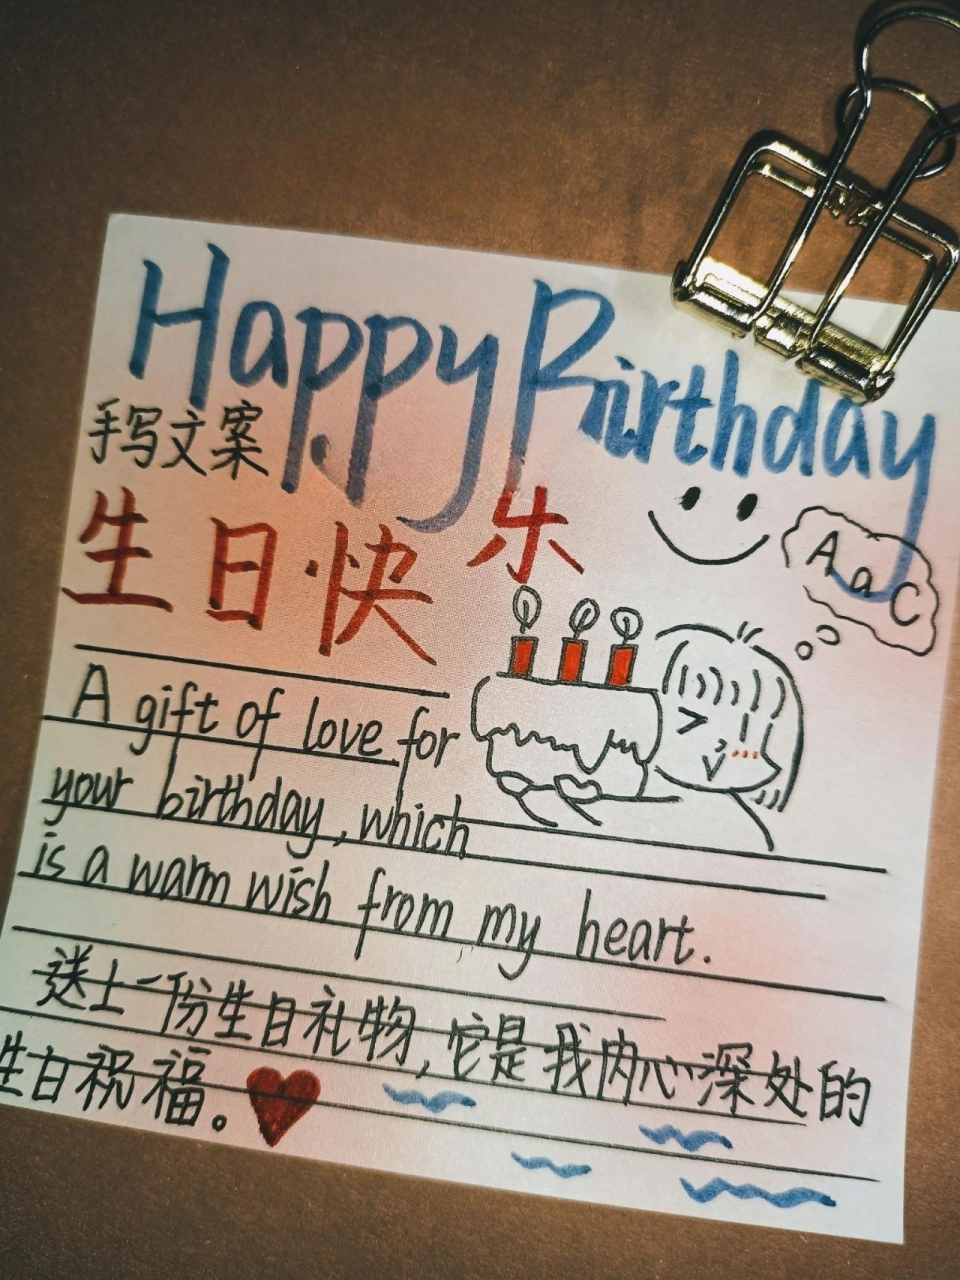 Happy Birthday
手写文案
生日快乐
AaC
A gift of love for
your birthday, which
is a warm wish from my heart.
送上一份生日礼物，它是我内心深处的
生日祝福。